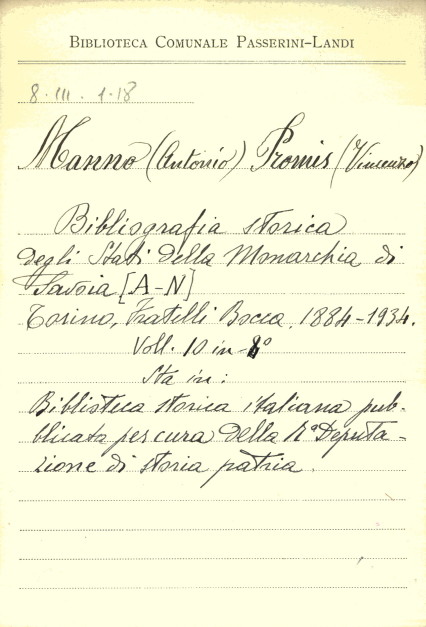 BIBLIOTECA COMUNALE PASSERINI-LANDI
8. III. 1-18
Manno (Antonio) Promis (Vincenzo)
Bibliografia storica
degli Stati della Monarchia di
Savoia [A-N]
Torino, Fratelli Bocca, 1884-1934.
Voll. 10 in-8°
Sta in:
Biblioteca storica italiana pub-
blicata per cura della Rª Deputa-
zione di storia patria.